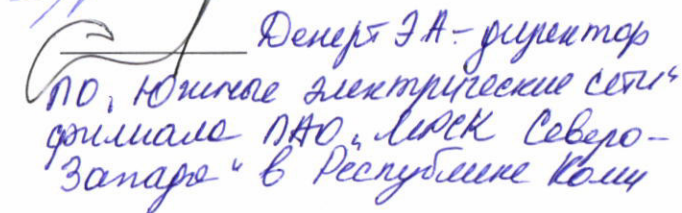 Денерт Э А - директор
ПО „Южные электрические сети"
филиала ПАО „МРСК Северо-
Запада" в Республике Коми